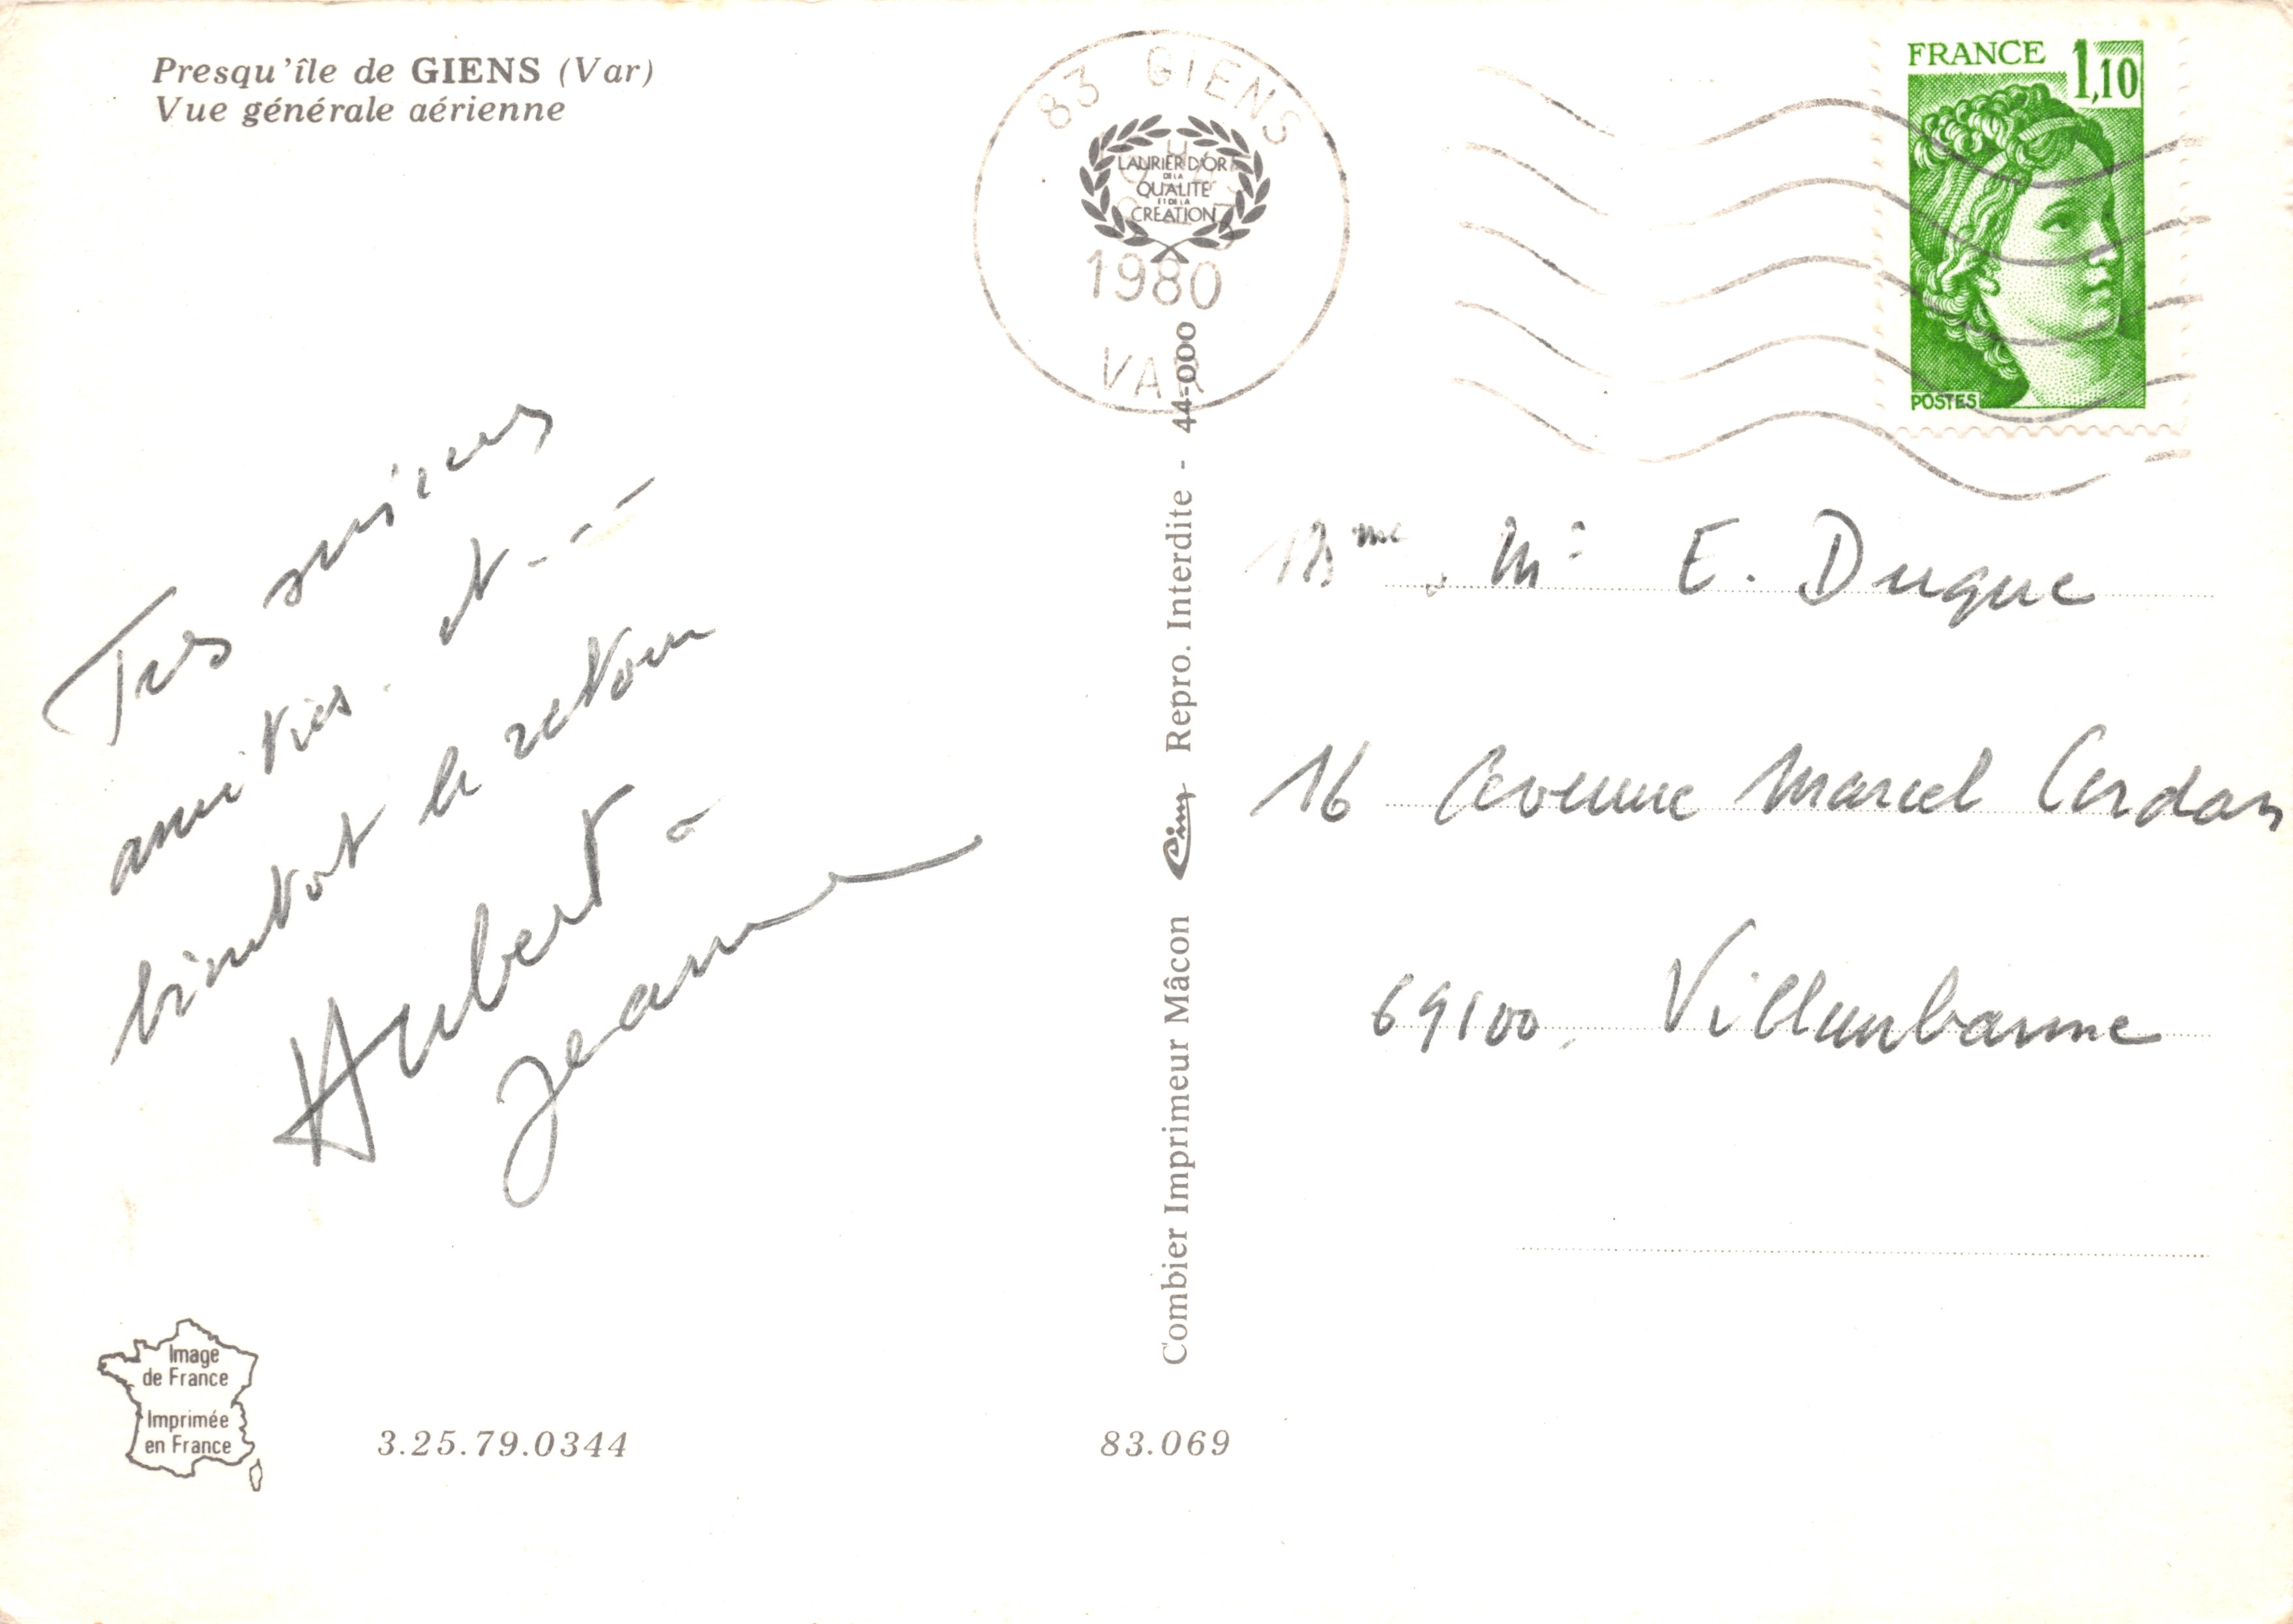 Presqu'île de GIENS (Var)
Vue générale aérienne
83 GIENS
LAURIER D'OR
DE LA
QUALITE
ET DE LA
CREATION
1980
VAR
FRANCE
1,10
POSTES
Tres
amitiés. Et - - -
bientot le retour
Hubert -
Jeanne
Combier Imprimeur Mâcon Cim Repro. Interdite - 44-000
Mme, Mr E. Duque
16 avenue Marcel Cerdan
69100, Villeurbanne
Image
de France
Imprimée
en France
3.25.79.0344
83.069